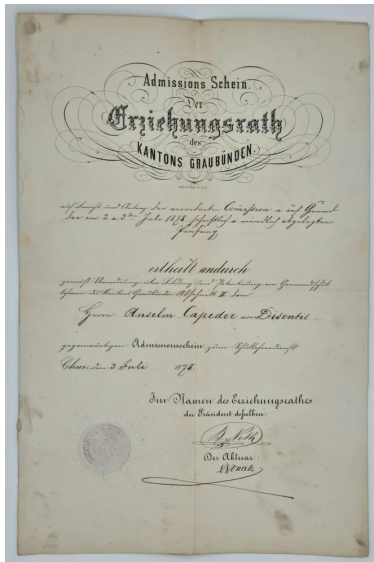 Admissions Schein.
Der
Erziehungsrath
des
KANTONS GRAUBÜNDEN.
auf Bericht und Antrag der verordneten Comission u. auf Grund
der am 2. u. 3ten Juli 1878 schriftlich u. mündlich abgelegten
Prüfung
ertheilt andurch
gemäss Verordnung über
lehrern des Kantons Graubünden Abschnitt II dem
Herrn Anselm Capeder von Disentis
gegenwärtigen Admissionsschein zum Schullehrerdienst
Chur, den 3 Juli 1878.
Im Namen des Erziehungsrathes
der Präsident desselben.
Der Aktuar